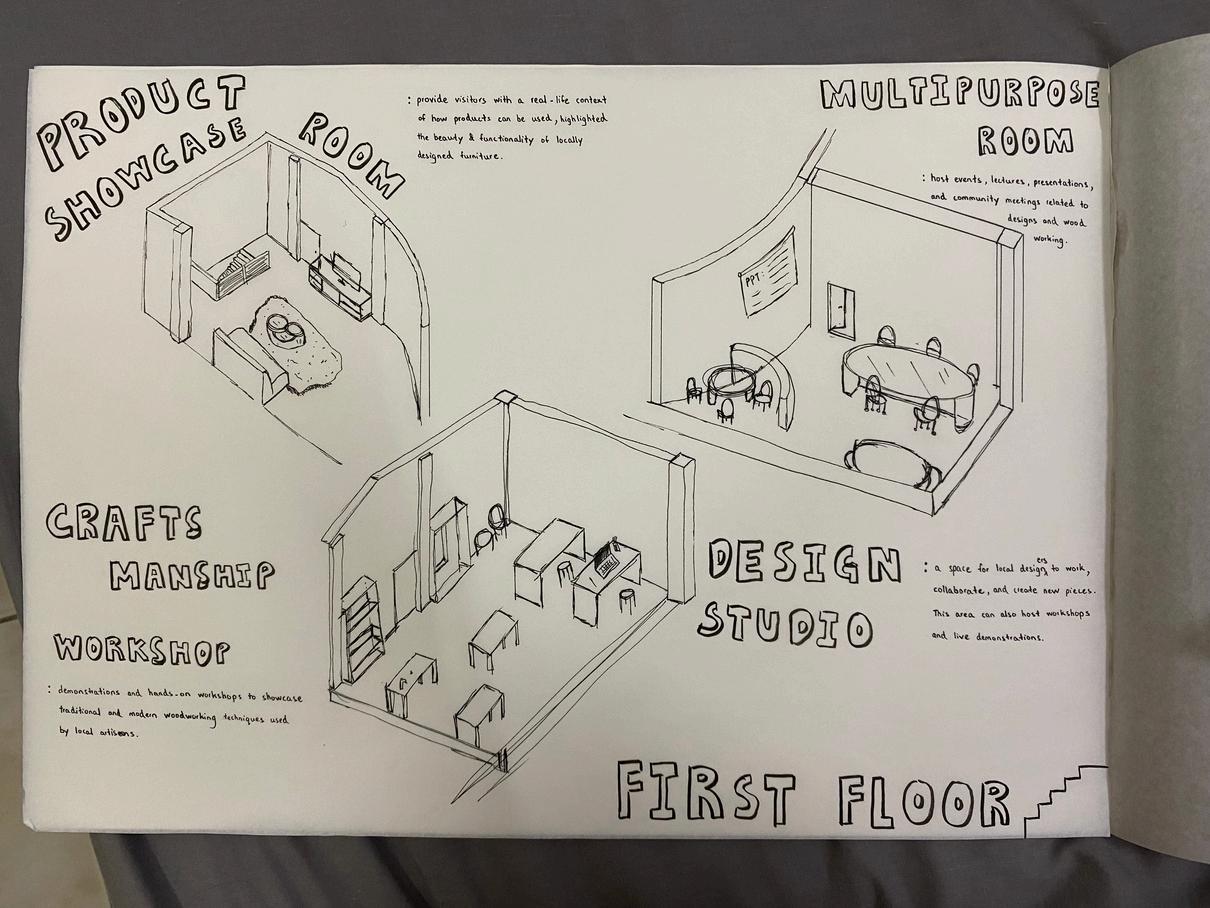 PRODUCT
SHOWCASE
ROOM
: provide visitors with a real-life context
of how products can be used, highlighted
the beauty & functionality of locally
designed furniture.
MULTIPURPOSE
ROOM
: host events, lectures, presentations,
and community meetings related to
designs and wood
working.
PPT:
CRAFTS
MANSHIP
WORKSHOP
: demonstrations and hands-on workshops to showcase
traditional and modern woodworking techniques used
by local artisans.
DESIGN
STUDIO
: a space for local designers to work,
collaborate, and create new pieces.
This area can also host workshops
and live demonstrations.
FIRST FLOOR